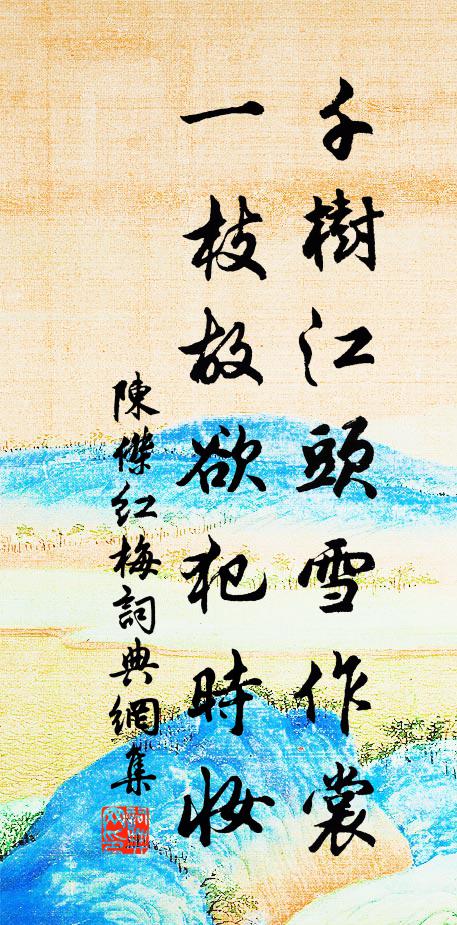 千樹江頭雪作裳
一枝故欲犯時妝
陳傑紅梅詞典網集